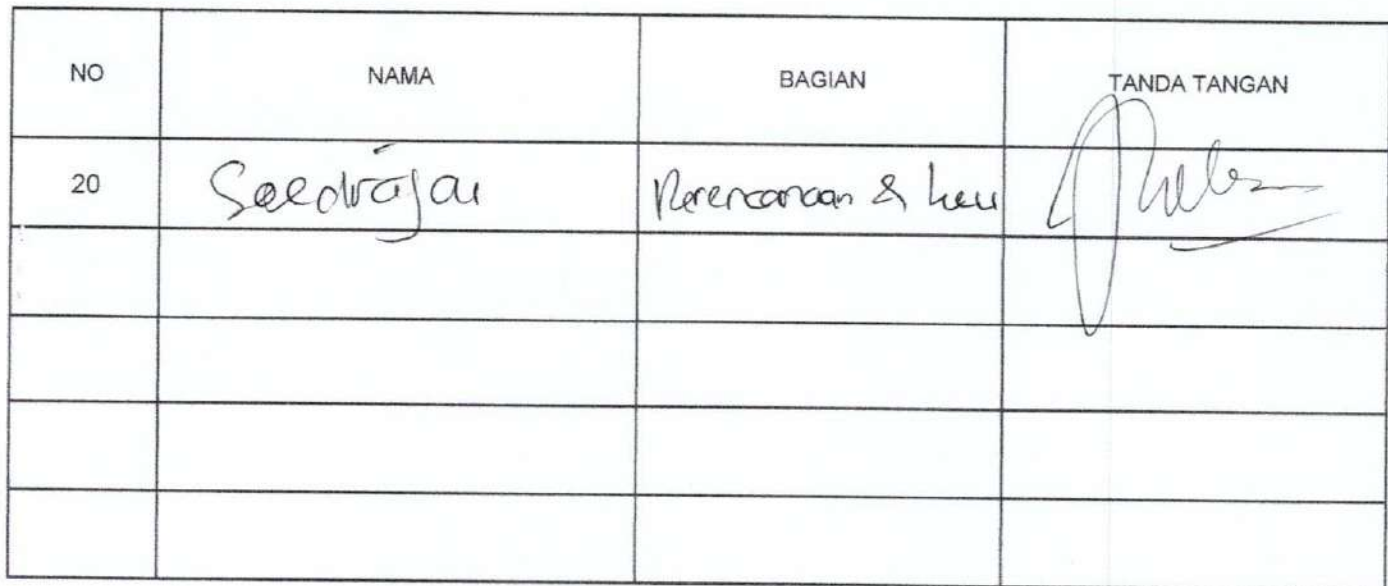 NO NAMA BAGIAN TANDA TANGAN
20 Perencanaan & keu